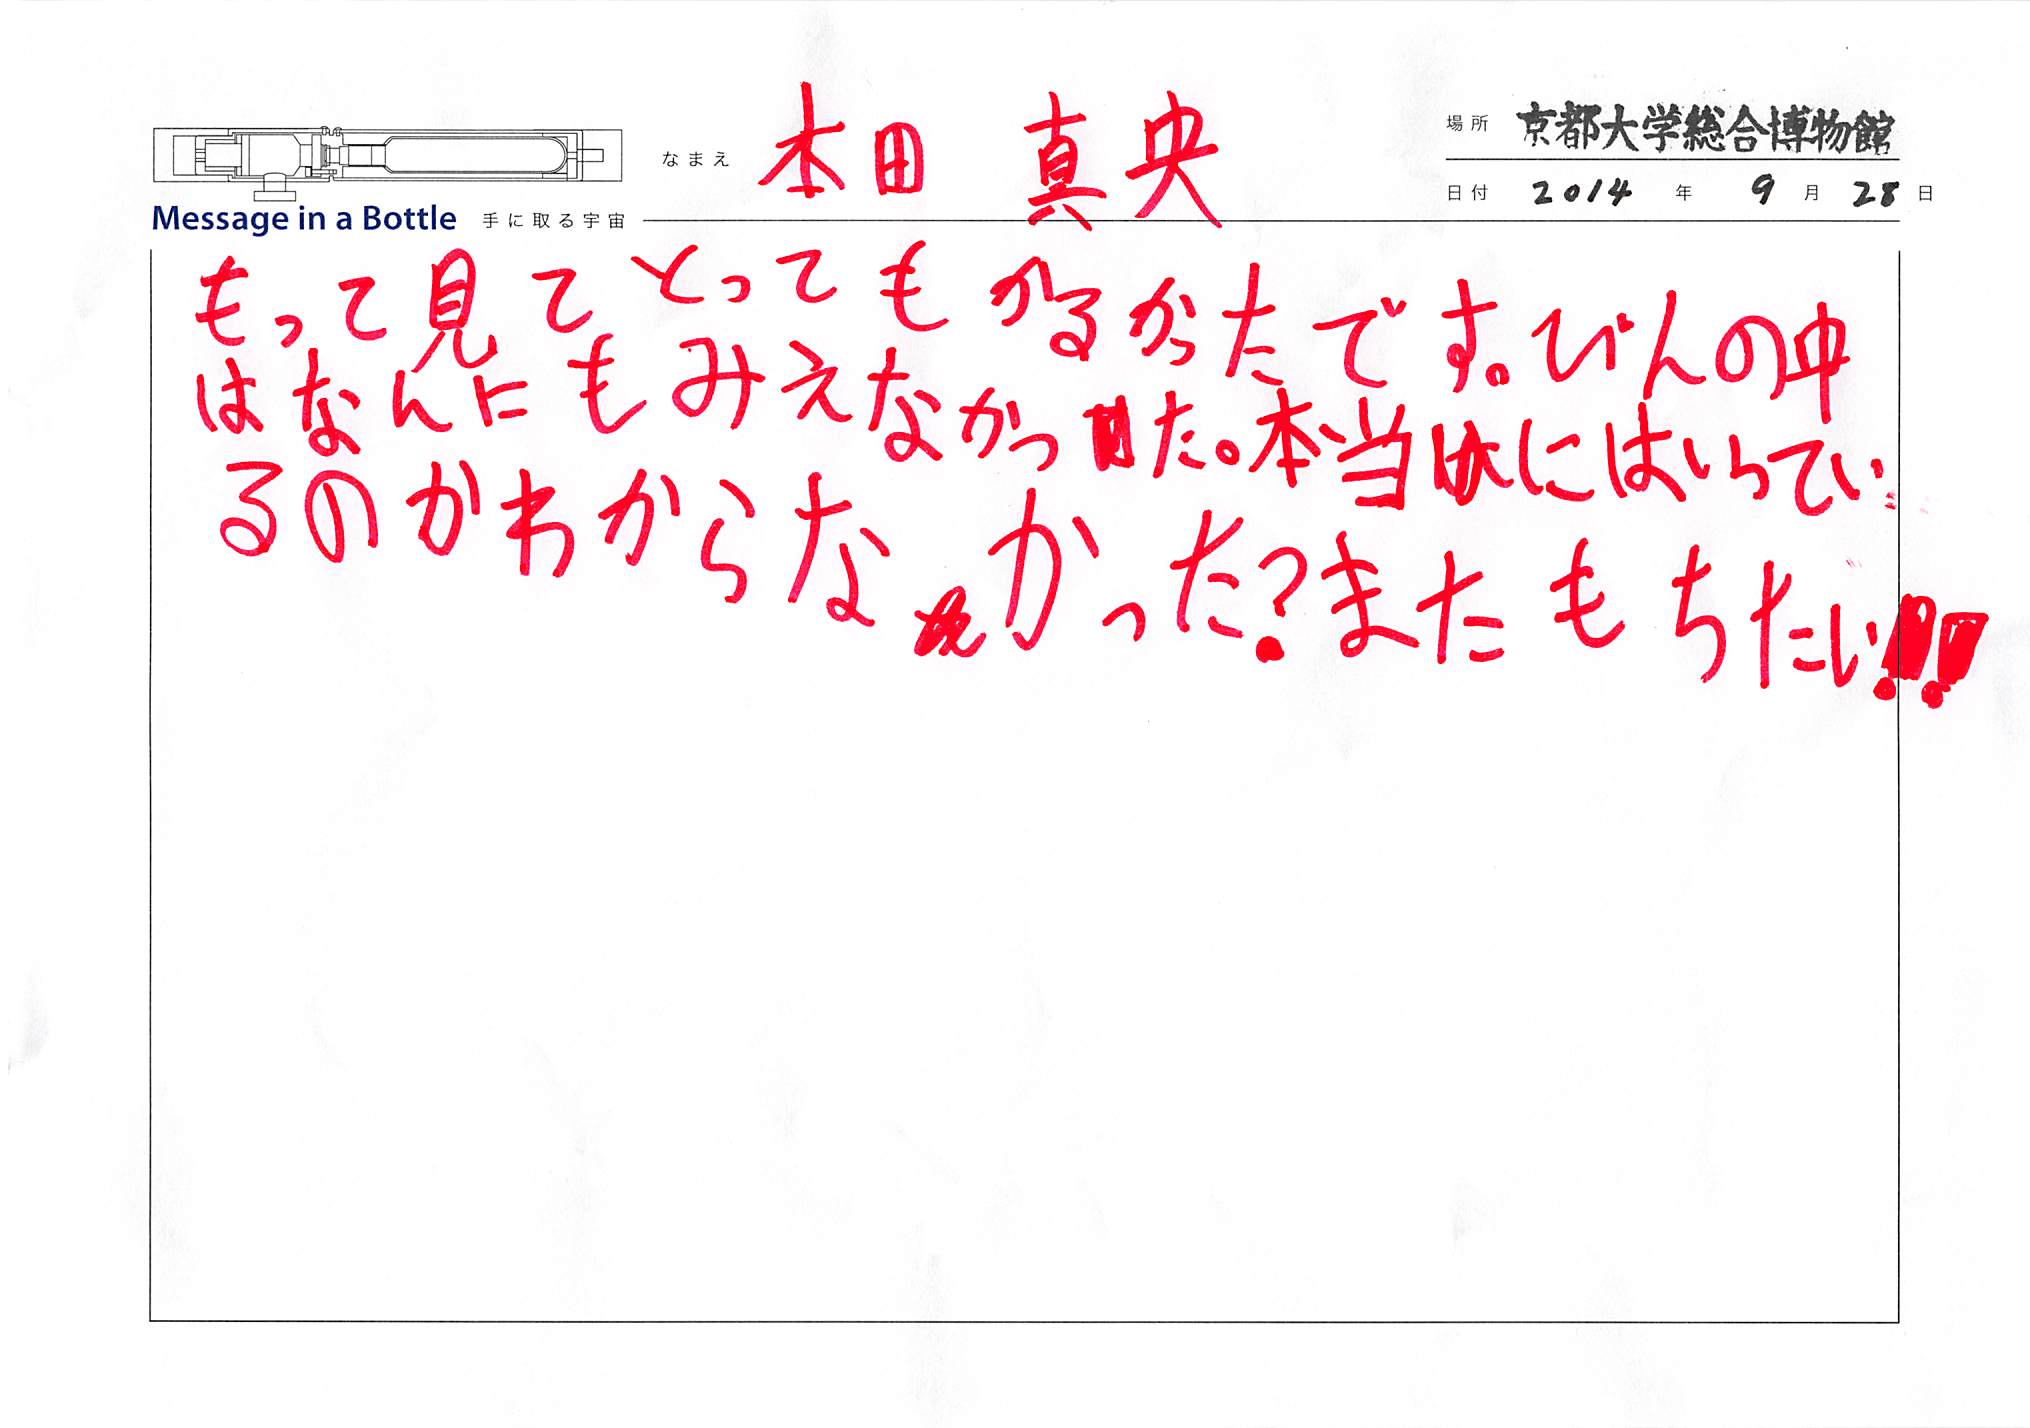 なまえ 本田 真央
場所 京都大学総合博物館
日付 2014 年 9 月 28 日
Message in a Bottle 手に取る宇宙
もって見てとってもかるかったです。びんの中
はなんにもみえなかった。本当にはいってい
るのかわからなかった?またもちたい!!